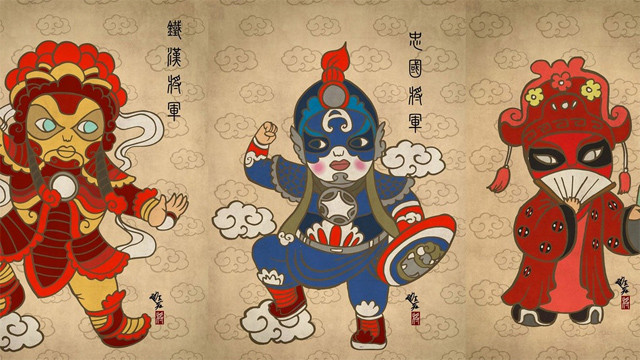 鐵漢將軍
忠國將軍